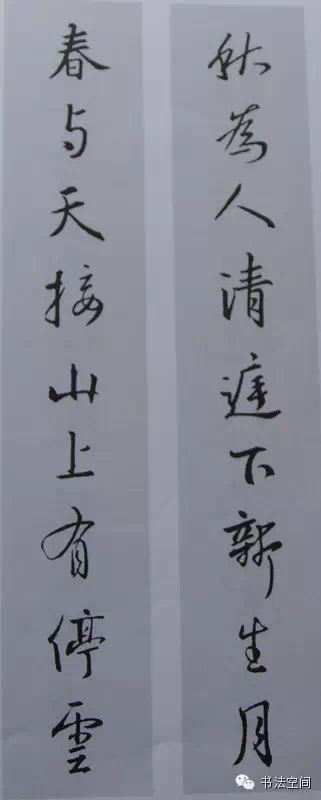 秋為人清庭下新生月
春与天接山上有停雲
书法空间